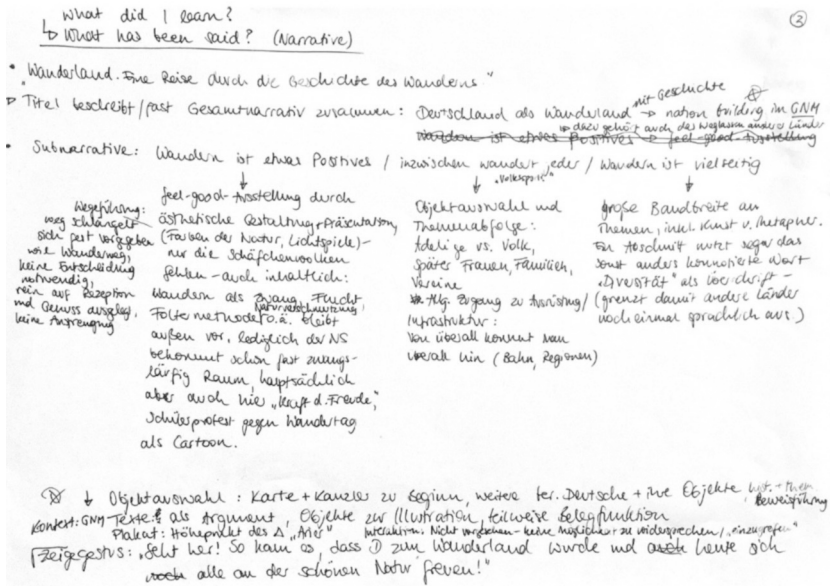 What did I learn?
↳ What has been said? (Narrative)
③
• "Wanderland. Eine Reise durch die Geschichte des Wanderns."
▷ Titel beschreibt/fast Gesamtnarrativ zusammen: Deutschland als Wanderland → nation building im GNM
mit Geschichte
→ dazu gehört auch das Weglassen anderer Länder
Wandern ist etwas Positives → feel-good-Ausstellung
• Subnarrative: Wandern ist etwas Positives / inzwischen wandert jeder / Wandern ist vielseitig
"Volkssport"
Wegeführung:
weg schlängelt
sich fest vorgegeben
wie Wanderweg,
keine Entscheidung
notwendig,
rein auf Rezeption
und Genuss ausgelegt,
keine Anstrengung
feel-good-Ausstellung durch
ästhetische Gestaltung + Präsentation
(Farben der Natur, Lichtspiele) –
nur die Schäfchenwolken
fehlen – auch inhaltlich:
Wandern als Zwang, Flucht,
Naturverschmutzung,
Foltermethode o.ä. bleibt
außen vor, lediglich der NS
bekommt schon fast zwangs-
läufig Raum, hauptsächlich
aber auch hier "Kraft d. Freude",
Schülerprotest gegen Wandertag
als Cartoon.
Objektauswahl und
Themenabfolge:
Adelige vs. Volk,
später Frauen, Familien,
Vereine
Allg. Zugang zu Ausrüstung /
Infrastruktur:
Von überall kommt man
überall hin (Bahn, Regionen)
große Bandbreite an
Themen, inkl. Kunst u. Metapher.
Ein Abschnitt nutzt sogar das
sonst anders konnotierte Wort
"Diversität" als Überschrift –
(grenzt damit andere Länder
noch einmal sprachlich aus.)
↓ Objektauswahl: Karte + Kanzler zu Beginn, weitere ber. Deutsche + ihre Objekte,
Beweisführung
Kontext: GNM Texte als Argument, Objekte zur Illustration, teilweise Belegfunktion
Plakat: Höhepunkt des "Arier" Interaktion: Nicht vorgesehen – keine Möglichkeit zu widersprechen / "einzugreifen"
Zeigegestus: "Seht her! So kam es, dass D zum Wanderland wurde und heute sich
alle an der schönen Natur freuen!"